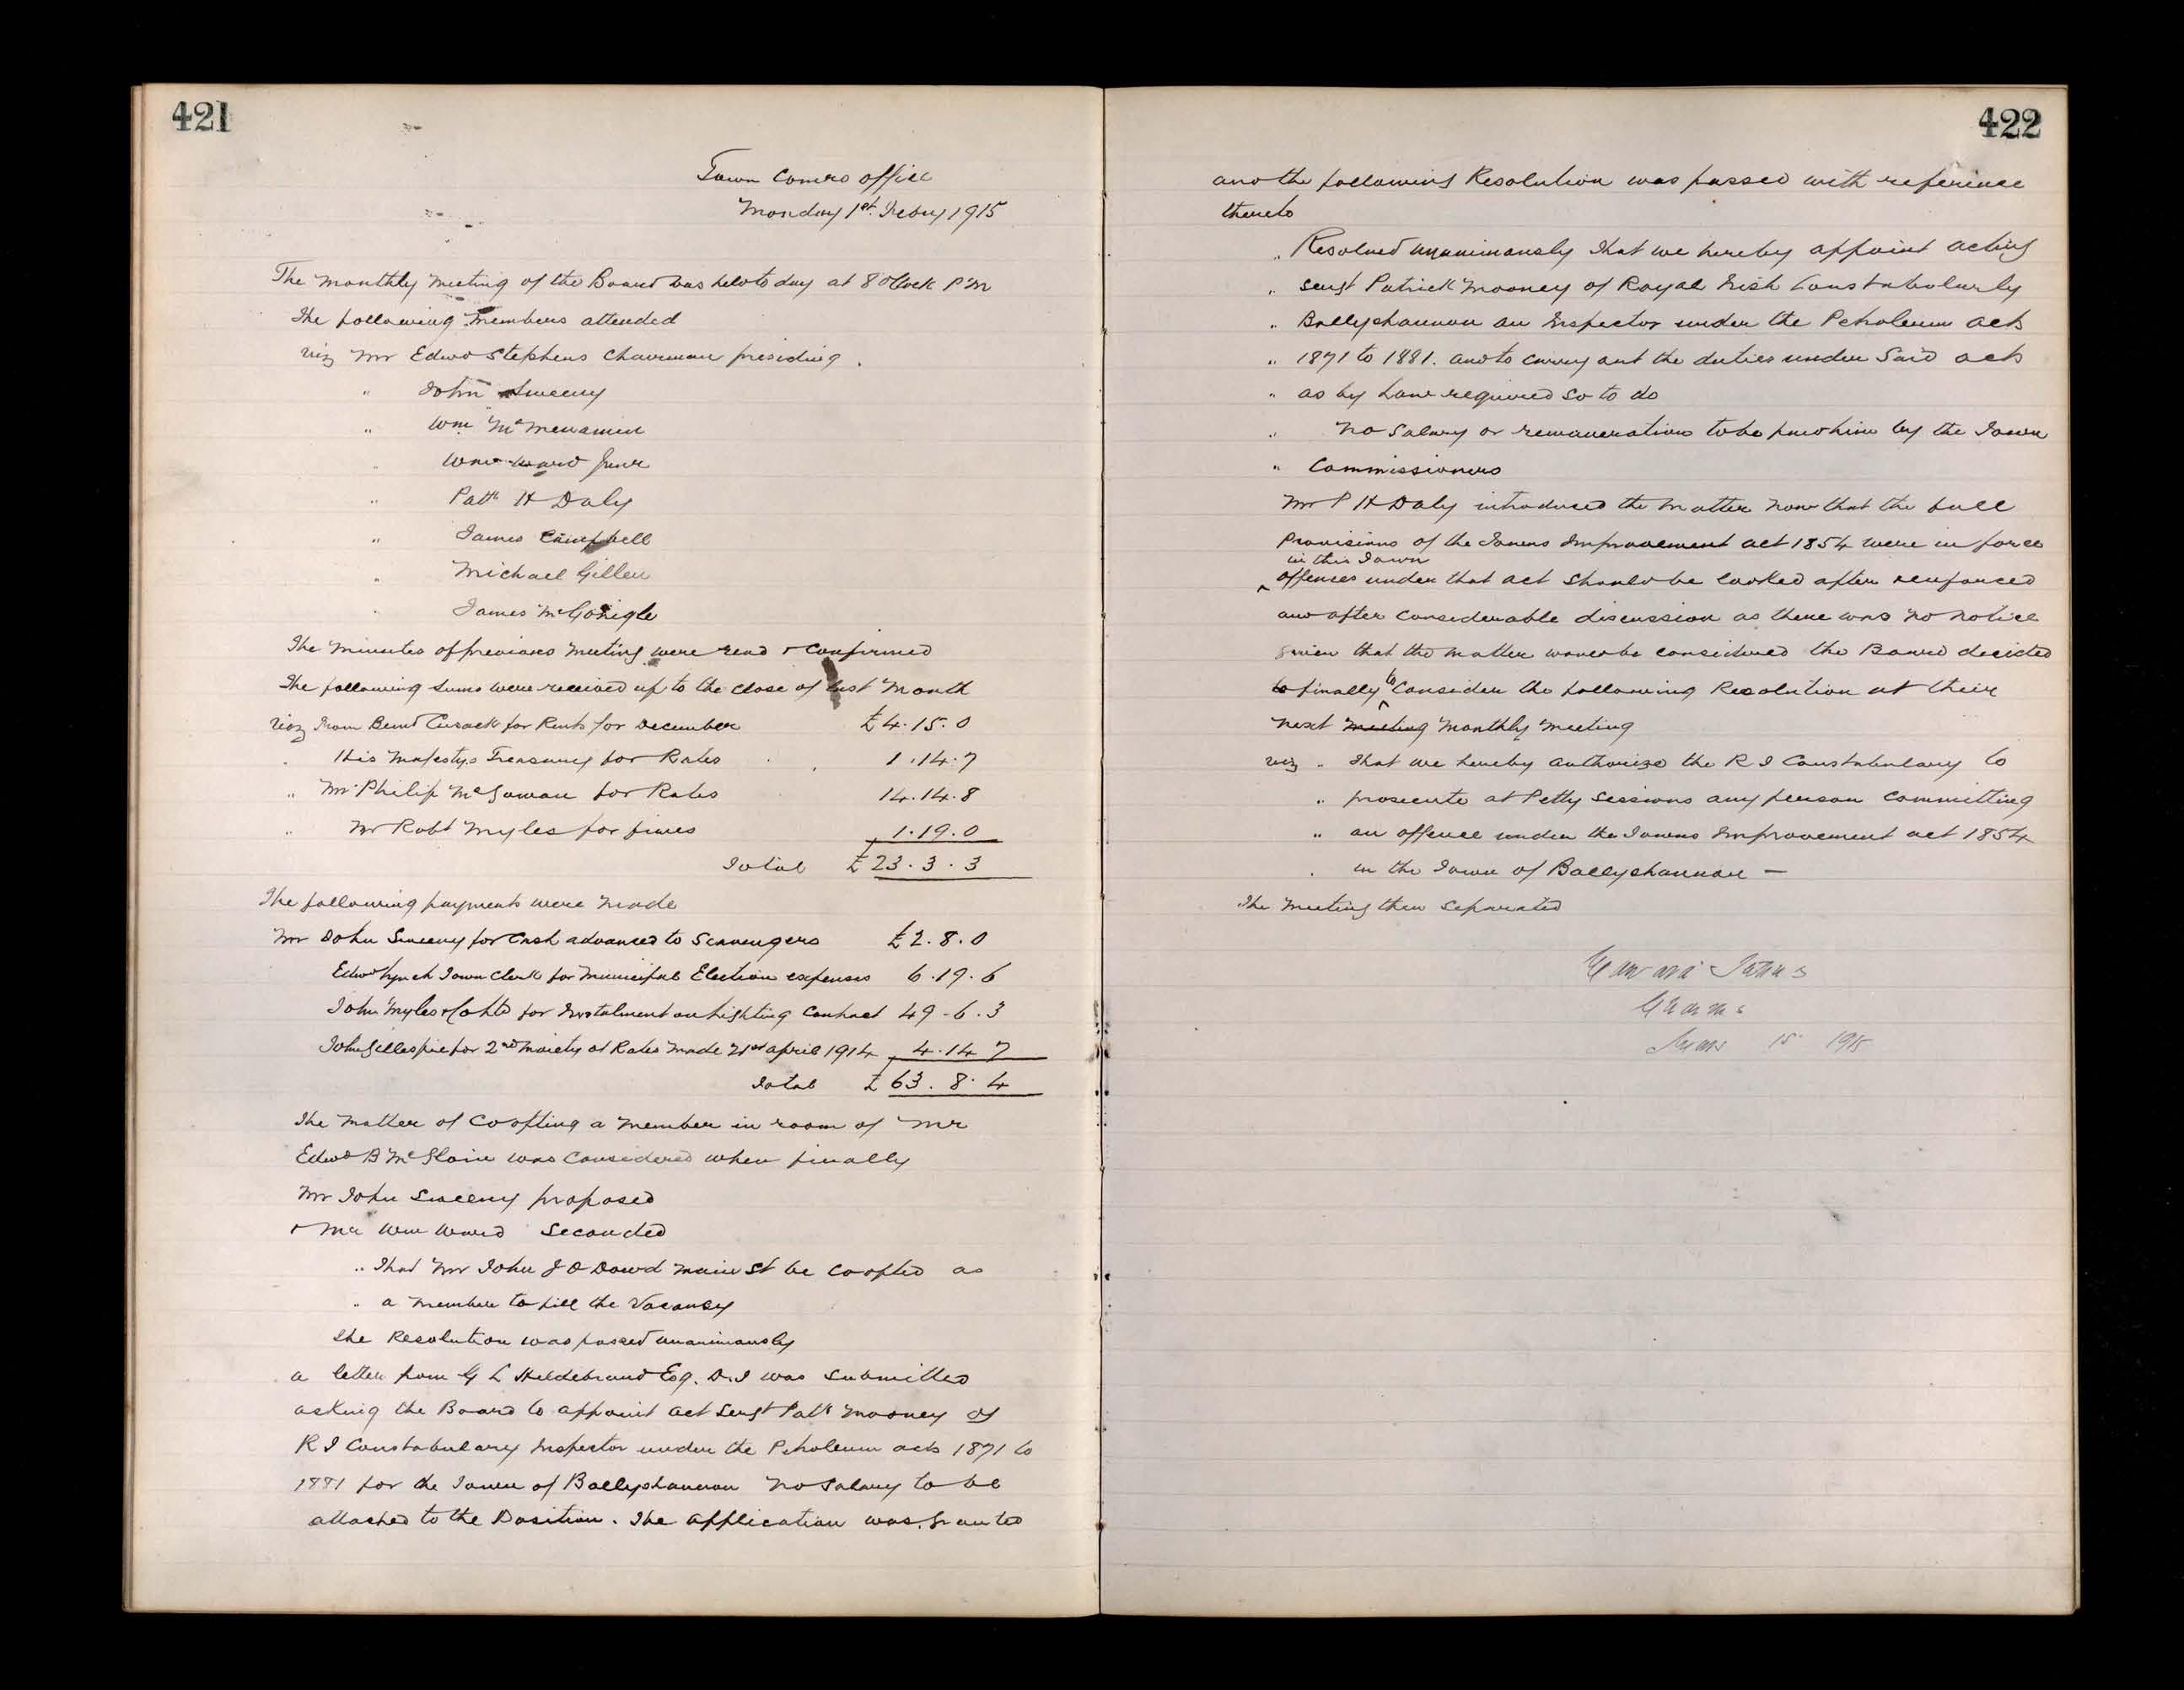 421
Town Comrs office
Monday 1st Feby 1915
The Monthly Meeting of the Board was held to day at 8 O'Clock P.M
The following Members attended
viz Mr Edwd Stephens Chairman presiding.
" John Sweeny
" Wm McMenamin
" Wm Ward Junr
" Patk H Daly
" James Campbell
" Michael Gillen
" James McGonigle
The Minutes of previous Meeting were read & Confirmed
The following sums were received up to the close of last Month
viz From Bernd Cusack for Rents for December £4.15.0
" His Majestys Treasury for Rates 1.14.7
" Mr Philip McGowan for Rates 14.14.8
" Mr Robt Myles for fines 1.19.0
Total £23.3.3
The following payments were Made
Mr John Sweeny for Cash advanced to Scavengers £2.8.0
Edwd Lynch Town Clerk for Municipal Election expenses 6.19.6
John Myles & Co Ltd for Instalment on Lighting Contract 49-6.3
John Gillespie for 2nd Moiety of Rates Made 21st april 1914 4.14 7
Total £63.8.4
The Matter of Coopting a Member in room of Mr
Edwd B Mc was Considered when finally
Mr John Sweeny proposed
& Mr Wm Ward Seconded
" That Mr John J O Dowd Main St be coopted as
" a Member to fill the Vacancy
The Resolution was passed unanimously
a letter from G L Hildebrand Esq. D.I was submitted
asking the Board to appoint act Sergt Patk Mooney of
R I Constabulary Inspector under the Petroleum acts 1871 to
1881 for the Town of Ballyshannon No Salary to be
attached to the Position. The application was granted
422
and the following Resolution was passed with reference
thereto
" Resolved unanimously that we hereby appoint acting
" Sergt Patrick Mooney of Royal Irish Constabularly
" Ballyshannon an Inspector under the Petroleum acts
" 1871 to 1881. and to carry out the duties under Said acts
" as by Law required so to do
" No Salary or remuneration to be paid him by the Town
" Commissioners
Mr P H Daly introduced the Matter Now that the full
Provisions of the Towns Improvement act 1854 were in force
in this Town
^ offenses under that act should be looked after & enforced
and after considerable discussion as there was No Notice
given that the matter would be considered the Board decided
to finally to Consider the following Resolution at their
next meeting Monthly Meeting
viz " That we hereby authorize the R I Constabulary to
" prosecute at Petty Sessions any person Committing
" an offence under the Towns Improvement act 1854
" in the Town of Ballyshannon —
The Meeting then Separated
1915